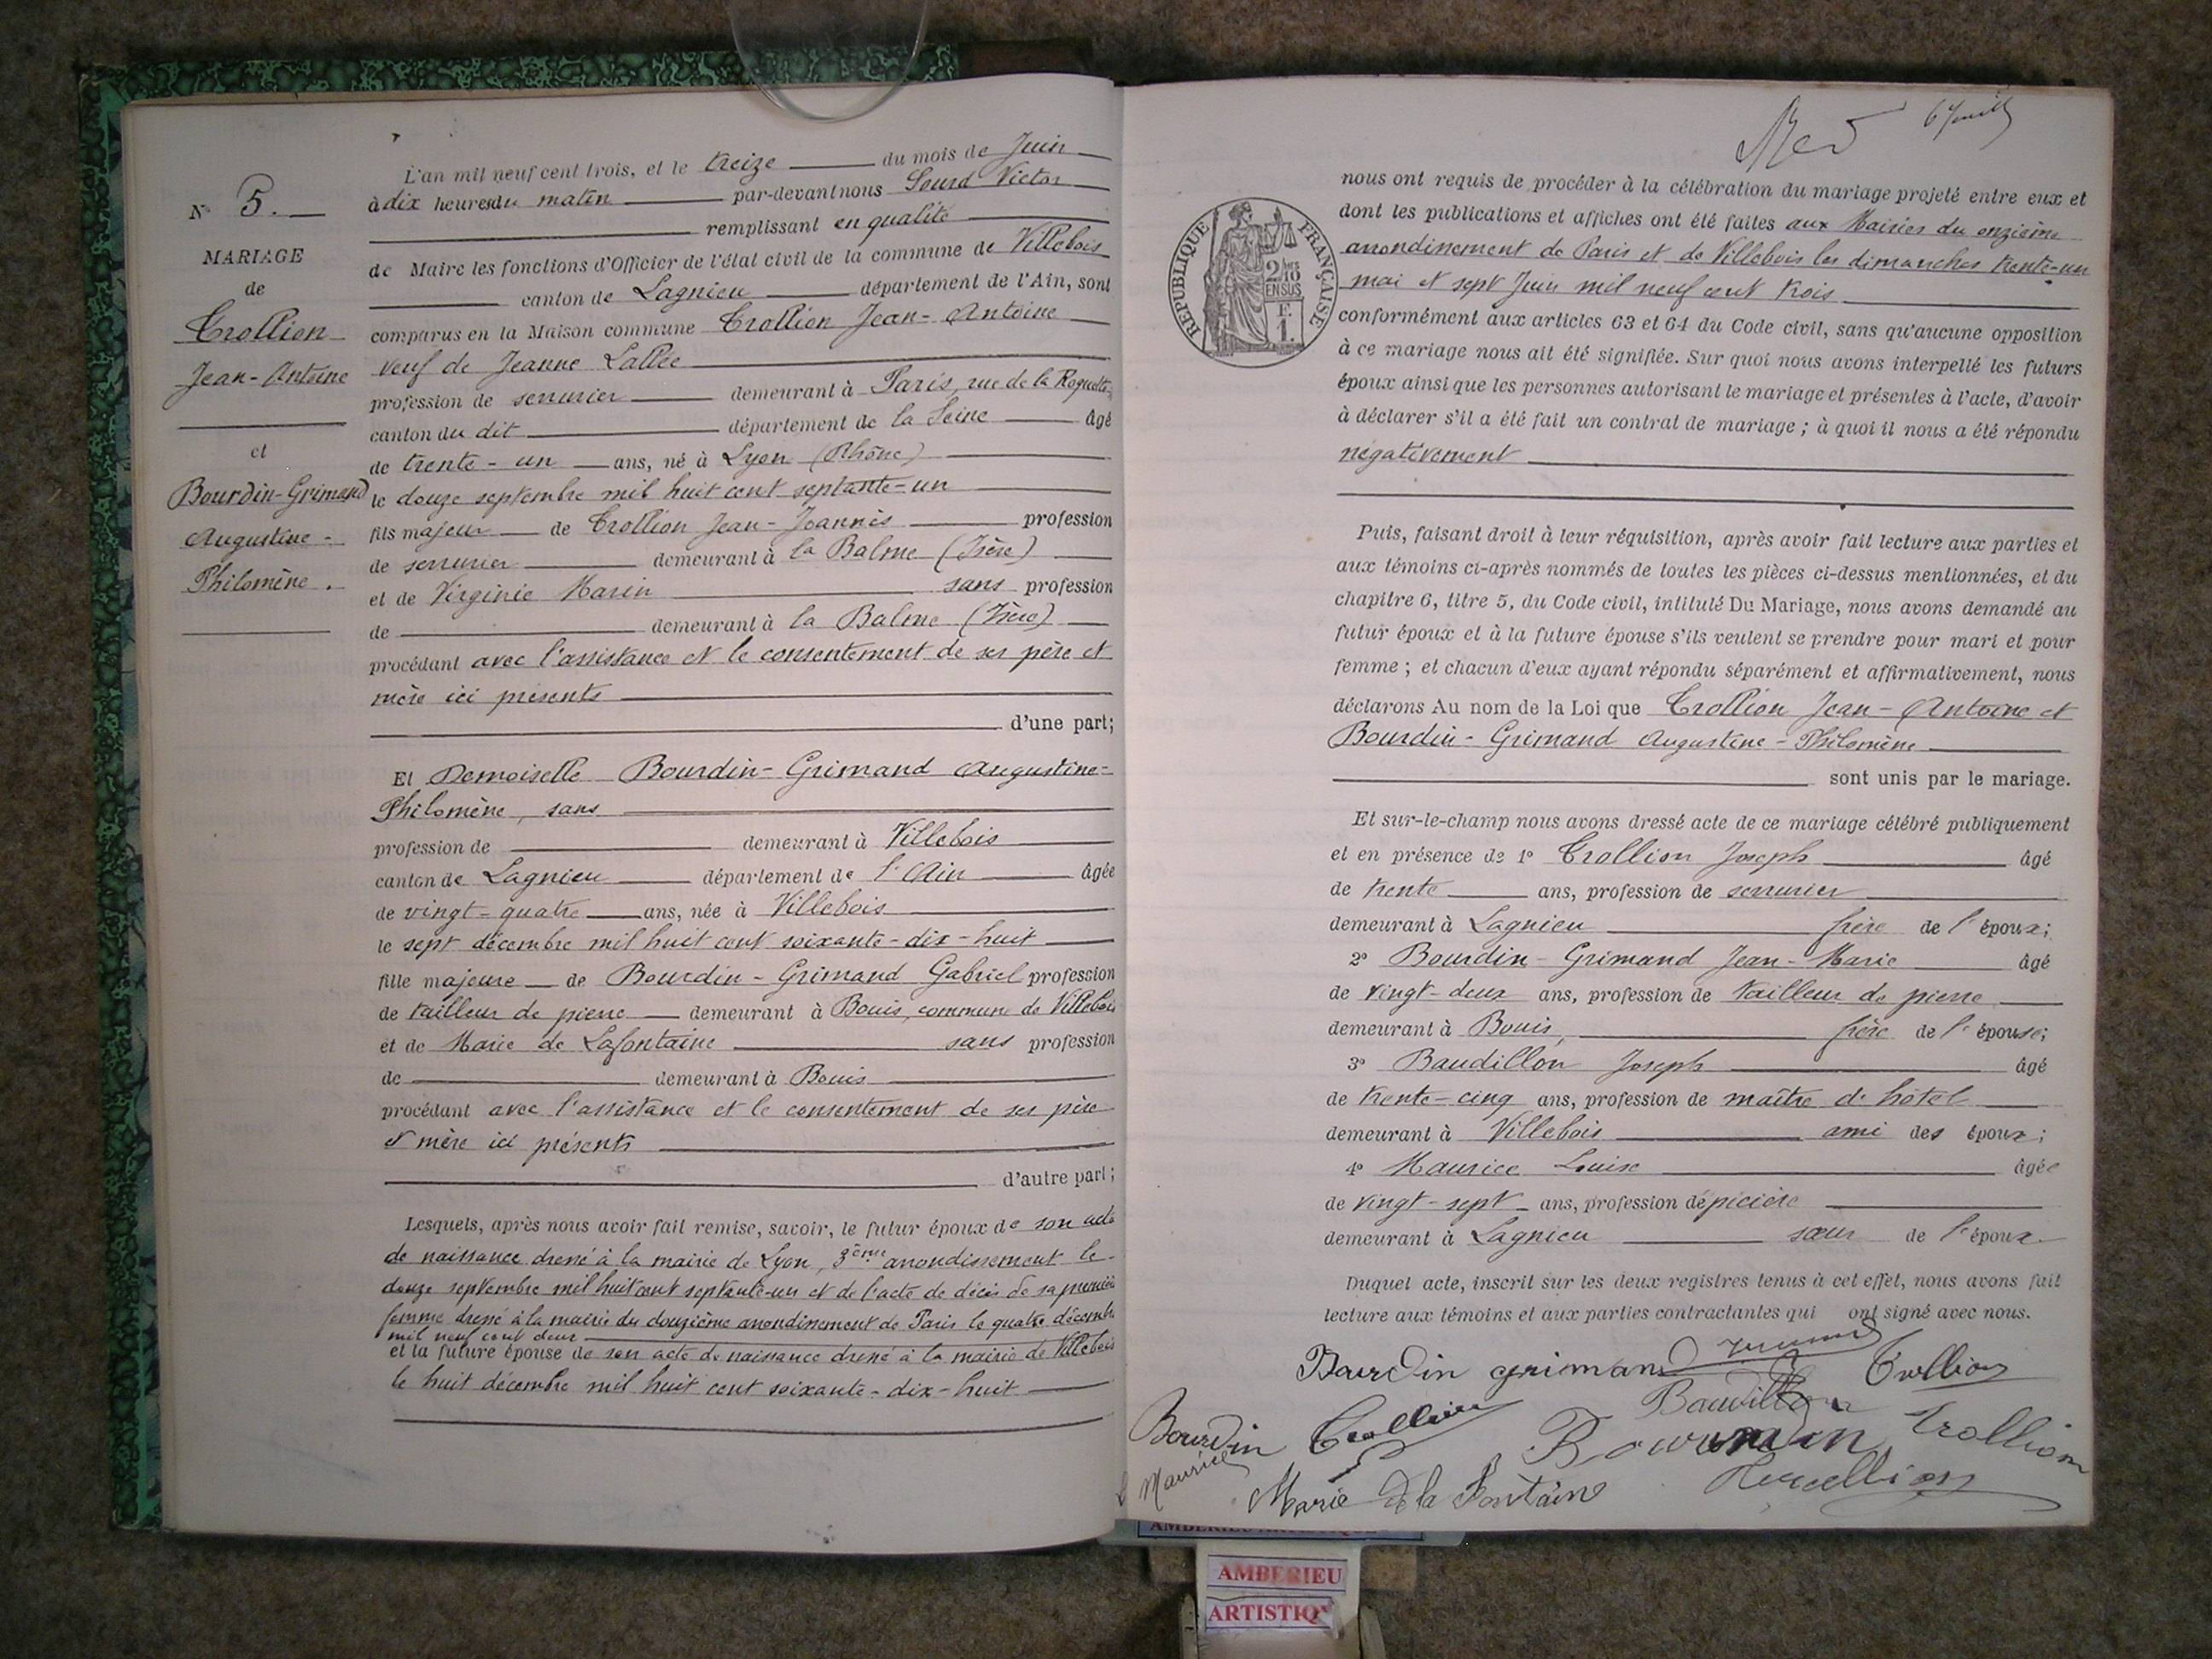 N° 5.
MARIAGE
de
Trollion
Jean-Antoine
et
Bourdin-Grimand
Augustine-
Philomène.
L'an mil neuf cent trois, et le treize du mois de Juin
à dix heures du matin par-devant nous Sourd Victor
remplissant en qualité
de Maire les fonctions d'Officier de l'état civil de la commune de Villebois
canton de Lagnieu département de l'Ain, sont
comparus en la Maison commune Trollion Jean-Antoine
veuf de Jeanne Lallée
profession de serrurier demeurant à Paris, rue de la Roquette,
canton du dit département de la Seine âgé
de trente-un ans, né à Lyon (Rhône)
le douze septembre mil huit cent septante-un
fils majeur de Trollion Jean-Joannès profession
de serrurier demeurant à la Balme (Isère)
et de Virginie Marin sans profession
de demeurant à la Balme (Isère)
procédant avec l'assistance et le consentement de ses père et
mère ici présents
d'une part;
Et Demoiselle Bourdin-Grimand Augustine-
Philomène, sans
profession de demeurant à Villebois
canton de Lagnieu département de l'Ain âgée
de vingt-quatre ans, née à Villebois
le sept décembre mil huit cent soixante-dix-huit
fille majeure de Bourdin-Grimand Gabriel profession
de tailleur de pierre demeurant à Bouis, commune de Villebois
et de Marie de Lafontaine sans profession
de demeurant à Bouis
procédant avec l'assistance et le consentement de ses père
et mère ici présents
d'autre part;
Lesquels, après nous avoir fait remise, savoir, le futur époux de son acte
de naissance dressé à la mairie de Lyon, 3ème arrondissement le
douze septembre mil huit cent septante-un et de l'acte de décès de sa première
femme dressé à la mairie du douzième arrondissement de Paris le quatre décembre
mil neuf cent deux
et la future épouse de son acte de naissance dressé à la mairie de Villebois
le huit décembre mil huit cent soixante-dix-huit
6 Juill
RÉPUBLIQUE FRANÇAISE
2/10
EN SUS
F.
1.
nous ont requis de procéder à la célébration du mariage projeté entre eux et
dont les publications et affiches ont été faites aux Mairies du onzième
arrondissement de Paris et de Villebois les dimanches trente-un
mai et sept Juin mil neuf cent trois
conformément aux articles 63 et 64 du Code civil, sans qu'aucune opposition
à ce mariage nous ait été signifiée. Sur quoi nous avons interpellé les futurs
époux ainsi que les personnes autorisant le mariage et présentes à l'acte, d'avoir
à déclarer s'il a été fait un contrat de mariage; à quoi il nous a été répondu
négativement
Puis, faisant droit à leur réquisition, après avoir fait lecture aux parties et
aux témoins ci-après nommés de toutes les pièces ci-dessus mentionnées, et du
chapitre 6, titre 5, du Code civil, intitulé Du Mariage, nous avons demandé au
futur époux et à la future épouse s'ils veulent se prendre pour mari et pour
femme; et chacun d'eux ayant répondu séparément et affirmativement, nous
déclarons Au nom de la Loi que Trollion Jean-Antoine et
Bourdin-Grimand Augustine-Philomène
sont unis par le mariage.
Et sur-le-champ nous avons dressé acte de ce mariage célébré publiquement
et en présence de 1° Trollion Joseph âgé
de trente ans, profession de serrurier
demeurant à Lagnieu frère de l'époux;
2° Bourdin-Grimand Jean-Marie âgé
de vingt-deux ans, profession de tailleur de pierre
demeurant à Bouis, frère de l'épouse;
3° Baudillon Joseph âgé
de trente-cinq ans, profession de maître d'hôtel
demeurant à Villebois ami des époux;
4° Maurice Louise âgée
de vingt-sept ans, profession d'épicière
demeurant à Lagnieu sœur de l'époux
Duquel acte, inscrit sur les deux registres tenus à cet effet, nous avons fait
lecture aux témoins et aux parties contractantes qui ont signé avec nous.
Bourdin grimand Trollion
Baudillon
Bourdin Trollion Bourdin Trollion
L Maurice Marie de la Fontaine
AMBERIEU
ARTISTIQ